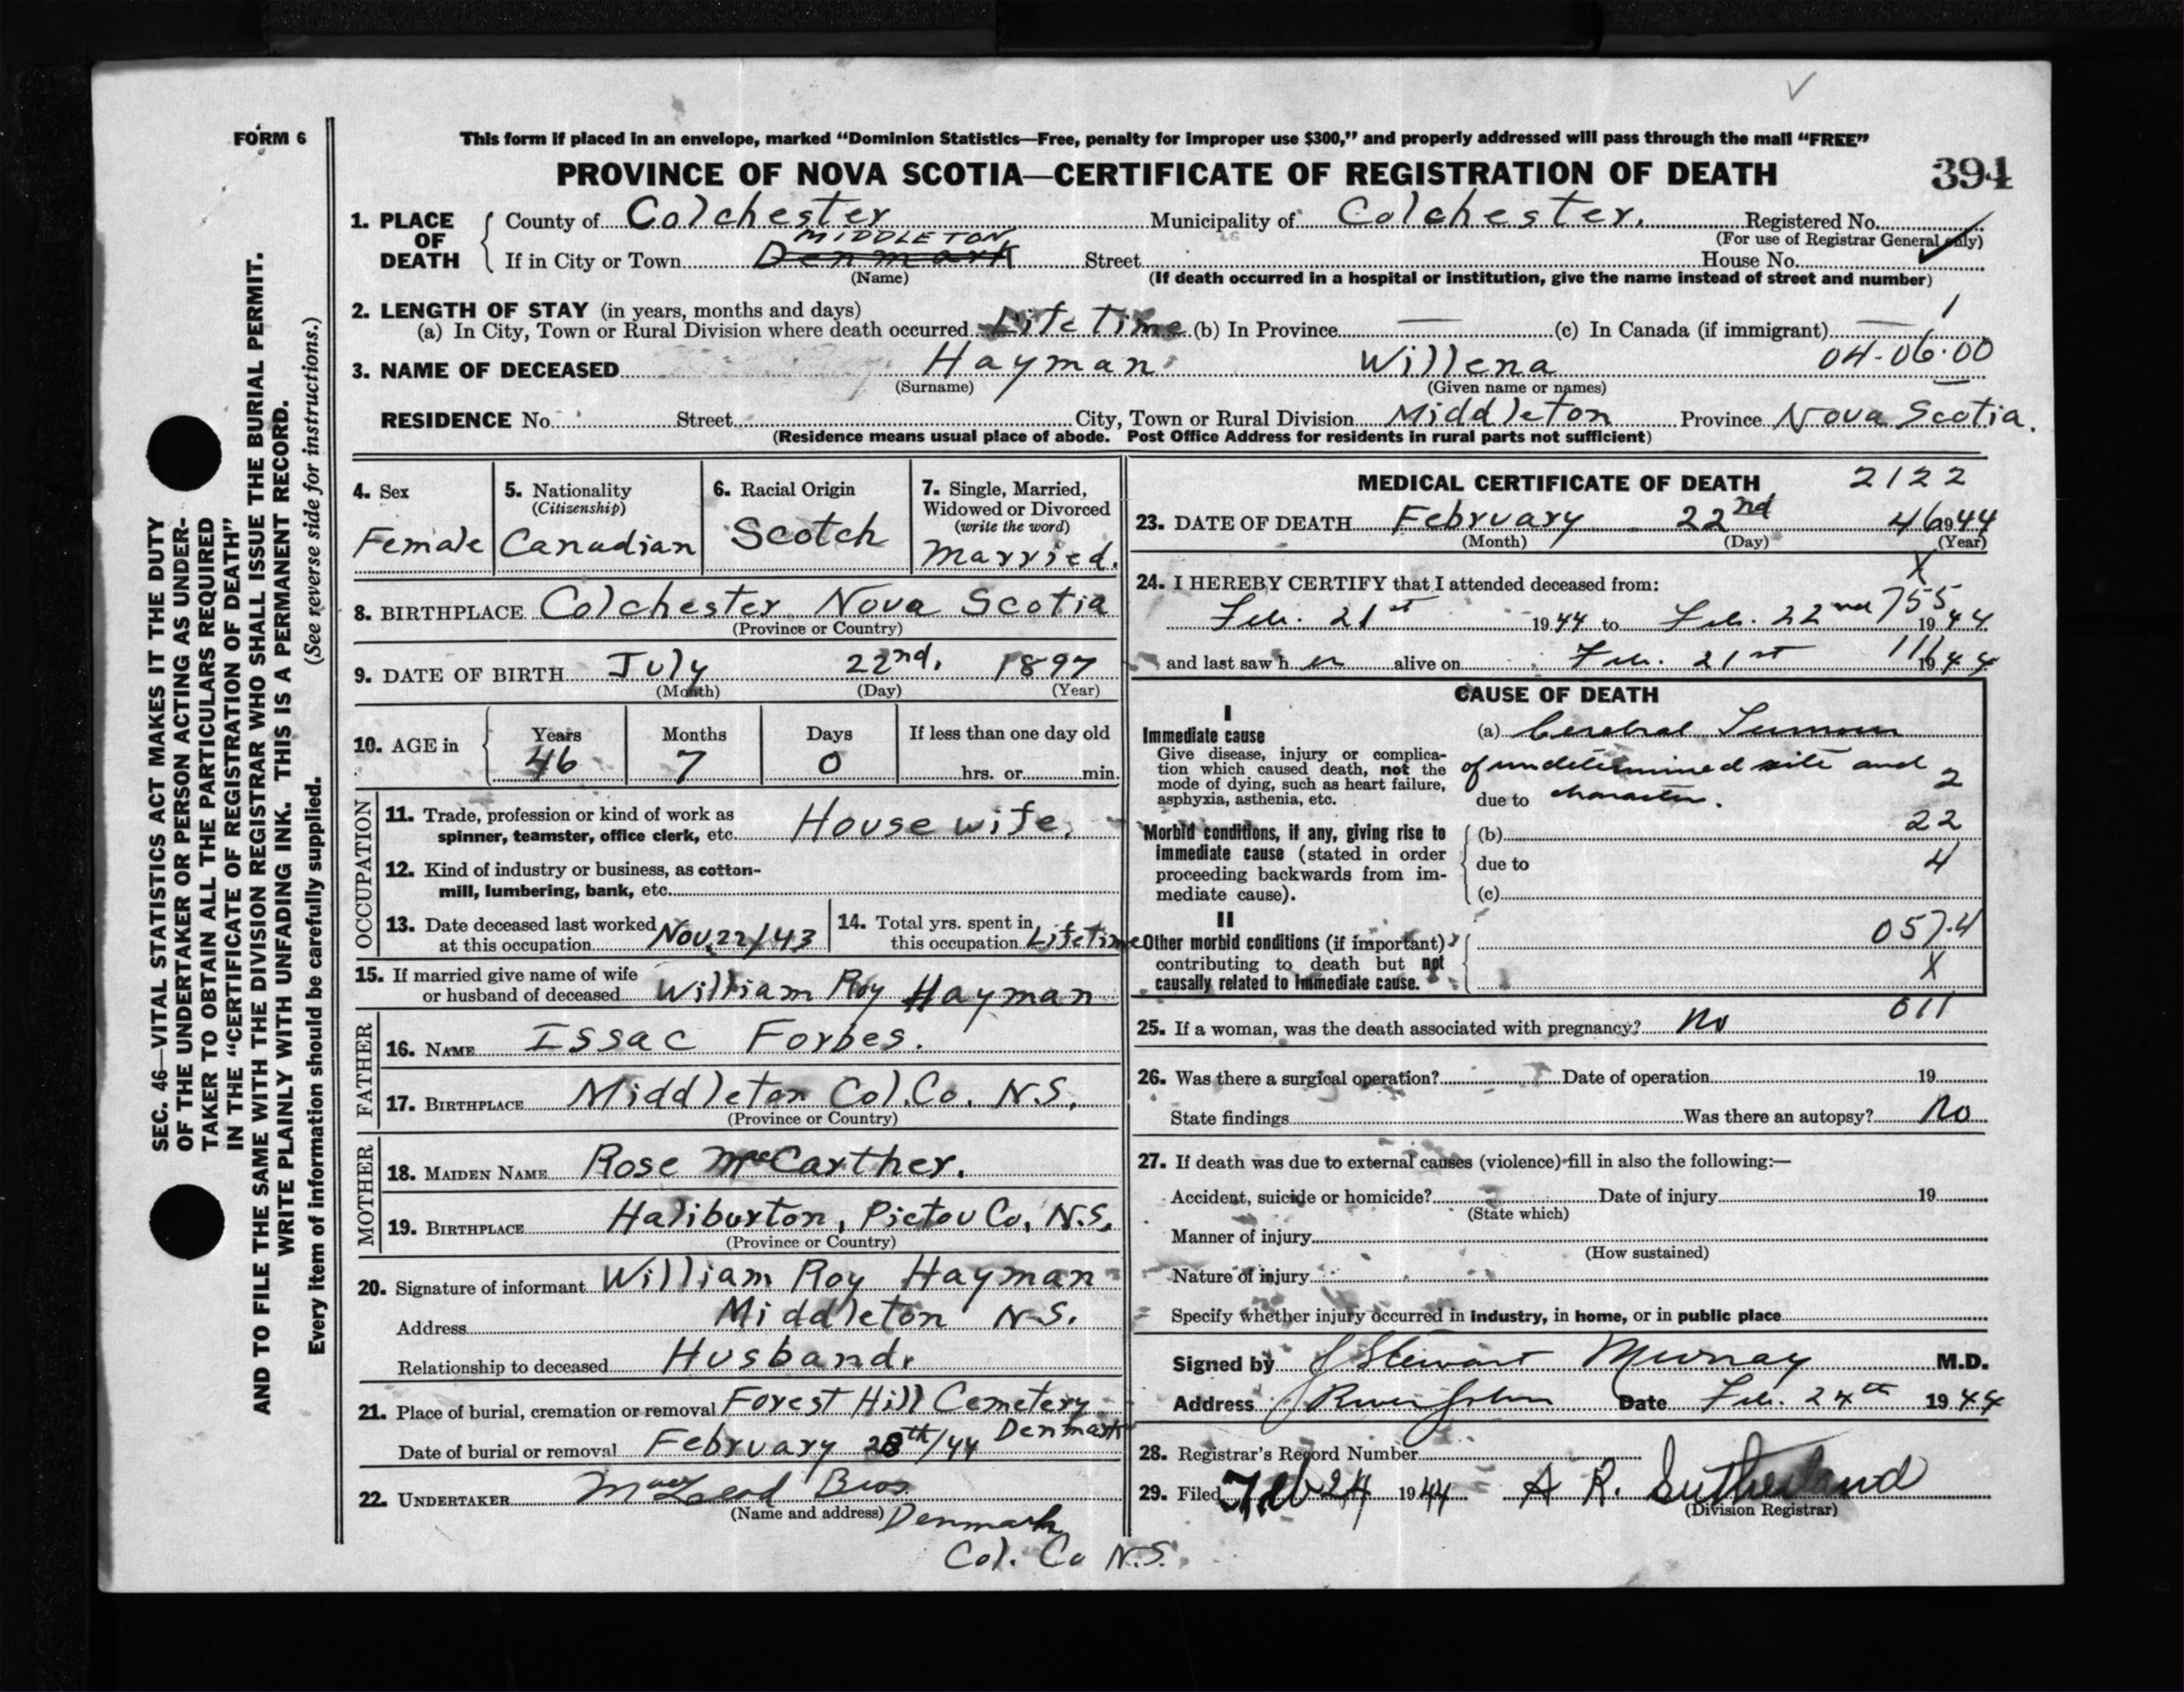 FORM 6
This form if placed in an envelope, marked “Dominion Statistics—Free, penalty for improper use $300,” and properly addressed will pass through the mail “FREE”
PROVINCE OF NOVA SCOTIA—CERTIFICATE OF REGISTRATION OF DEATH
394
1. PLACE OF DEATH
County of Colchester Municipality of Colchester. Registered No.
(For use of Registrar General only)
MIDDLETON
If in City or Town Denmark Street House No.
(Name) (If death occurred in a hospital or institution, give the name instead of street and number)
2. LENGTH OF STAY (in years, months and days) 1
(a) In City, Town or Rural Division where death occurred Life time (b) In Province — (c) In Canada (if immigrant) —
3. NAME OF DECEASED Hayman Willena 04-06-00
(Surname) (Given name or names)
RESIDENCE No. Street City, Town or Rural Division Middleton Province Nova Scotia.
(Residence means usual place of abode. Post Office Address for residents in rural parts not sufficient)
4. Sex
Female
5. Nationality
(Citizenship)
Canadian
6. Racial Origin
Scotch
7. Single, Married,
Widowed or Divorced
(write the word)
Married.
8. BIRTHPLACE Colchester Nova Scotia
(Province or Country)
9. DATE OF BIRTH July 22nd, 1897
(Month) (Day) (Year)
10. AGE in Years Months Days If less than one day old
46 7 0 hrs. or min.
OCCUPATION
11. Trade, profession or kind of work as
spinner, teamster, office clerk, etc. House wife.
12. Kind of industry or business, as cotton-
mill, lumbering, bank, etc.
13. Date deceased last worked
at this occupation Nov. 22/43
14. Total yrs. spent in
this occupation Lifetime
15. If married give name of wife
or husband of deceased William Roy Hayman
FATHER
16. NAME Issac Forbes.
17. BIRTHPLACE Middleton Col. Co. N.S.
(Province or Country)
MOTHER
18. MAIDEN NAME Rose MacCarther.
19. BIRTHPLACE Haliburton, Pictou Co, N.S.
(Province or Country)
20. Signature of informant William Roy Hayman
Address Middleton N.S.
Relationship to deceased Husband.
21. Place of burial, cremation or removal Forest Hill Cemetery
Denmark
Date of burial or removal February 28th/44
22. UNDERTAKER MacLeod Bros.
(Name and address) Denmark
Col. Co N.S.
MEDICAL CERTIFICATE OF DEATH 2122
23. DATE OF DEATH February 22nd 46 1944
(Month) (Day) (Year)
X
24. I HEREBY CERTIFY that I attended deceased from:
755
Feb. 21st 1944 to Feb. 22nd 1944
111
and last saw her alive on Feb. 21st 1944
CAUSE OF DEATH
I
Immediate cause
Give disease, injury or complica-
tion which caused death, not the
mode of dying, such as heart failure,
asphyxia, asthenia, etc.
(a) Cerebral Tumour
of undetermined site and
2
due to character.
Morbid conditions, if any, giving rise to
immediate cause (stated in order
proceeding backwards from im-
mediate cause).
(b) 22
due to 4
(c)
II
Other morbid conditions (if important)
contributing to death but not
causally related to immediate cause.
057.4
X
011
25. If a woman, was the death associated with pregnancy? No
26. Was there a surgical operation? Date of operation 19
State findings Was there an autopsy? No
27. If death was due to external causes (violence) fill in also the following:—
Accident, suicide or homicide? Date of injury 19
(State which)
Manner of injury
(How sustained)
Nature of injury
Specify whether injury occurred in industry, in home, or in public place
Signed by J Stewart Murray M.D.
Address River John Date Feb. 24th 1944
28. Registrar's Record Number
29. Filed Feb 24 1944 A R. Sutherland
(Division Registrar)
SEC. 46—VITAL STATISTICS ACT MAKES IT THE DUTY
OF THE UNDERTAKER OR PERSON ACTING AS UNDER-
TAKER TO OBTAIN ALL THE PARTICULARS REQUIRED
IN THE “CERTIFICATE OF REGISTRATION OF DEATH”
AND TO FILE THE SAME WITH THE DIVISION REGISTRAR WHO SHALL ISSUE THE BURIAL PERMIT.
WRITE PLAINLY WITH UNFADING INK. THIS IS A PERMANENT RECORD.
Every item of information should be carefully supplied. (See reverse side for instructions.)